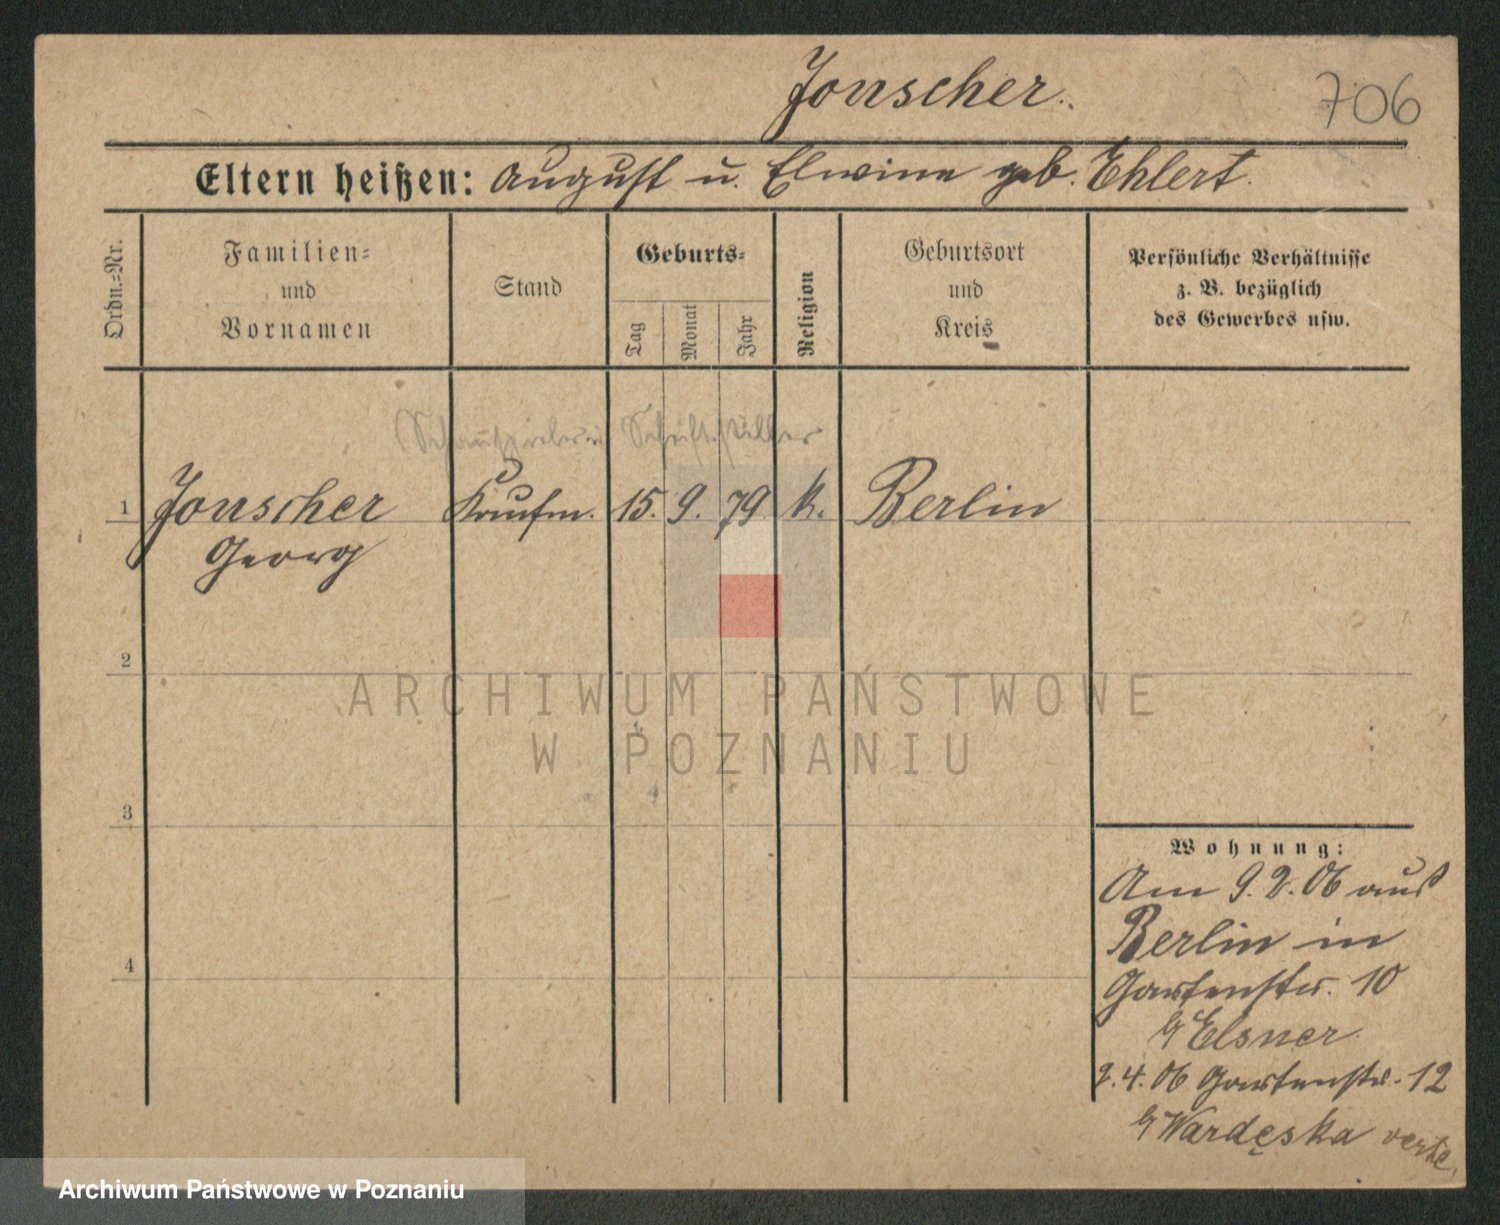 Jonscher.
706
Eltern heißen: August u. Elwine geb. Ehlert.
Ordn.=Nr.
Familien=
und
Vornamen
Stand
Geburts=
Tag
Monat
Jahr
Religion
Geburtsort
und
Kreis
Persönliche Verhältnisse
z. B. bezüglich
des Gewerbes usw.
Schriftsteller
1 Jonscher Kaufm. 15. 9. 79 k. Berlin
Georg
2
3
4
Wohnung:
Am 9. 2. 06 aus
Berlin in
Gartenstr. 10
Elsner
2. 4. 06 Gartenstr. 12
Wardęska verte.
ARCHIWUM PAŃSTWOWE
W POZNANIU
Archiwum Państwowe w Poznaniu